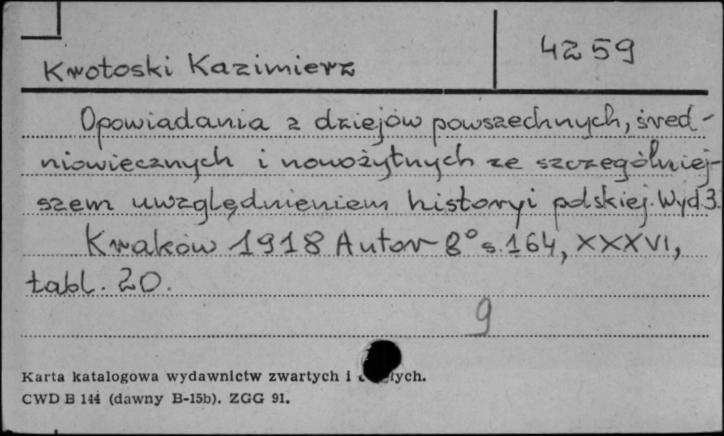 Krotoski Kazimierz
4259
Opowiadania z dziejów powszechnych, śred-
niowiecznych i nowożytnych ze szczególniej-
szem uwzględnieniem historyi polskiej. Wyd 3.
Kraków 1918 Autor 8° s. 164, XXXVI,
tabl. 20.
9
Karta katalogowa wydawnictw zwartych i
CWD B 144 (dawny B-15b). ZGG 91.